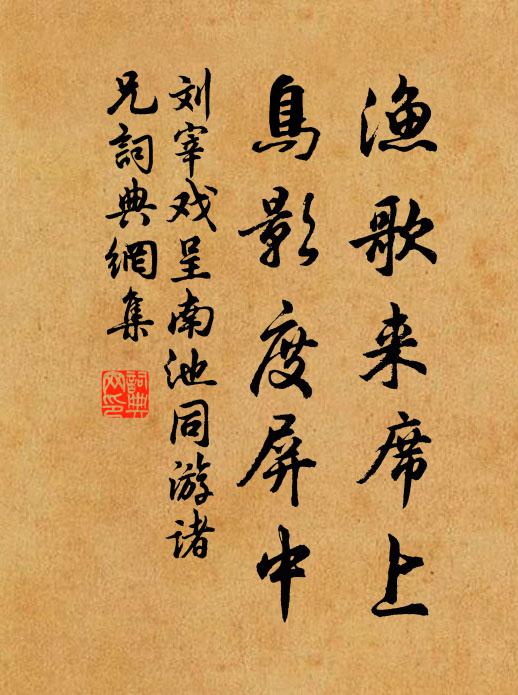 渔歌来席上
鳥影度屏中
刘宰戏呈南池同游诸
兄詞典網集
詞典
网印